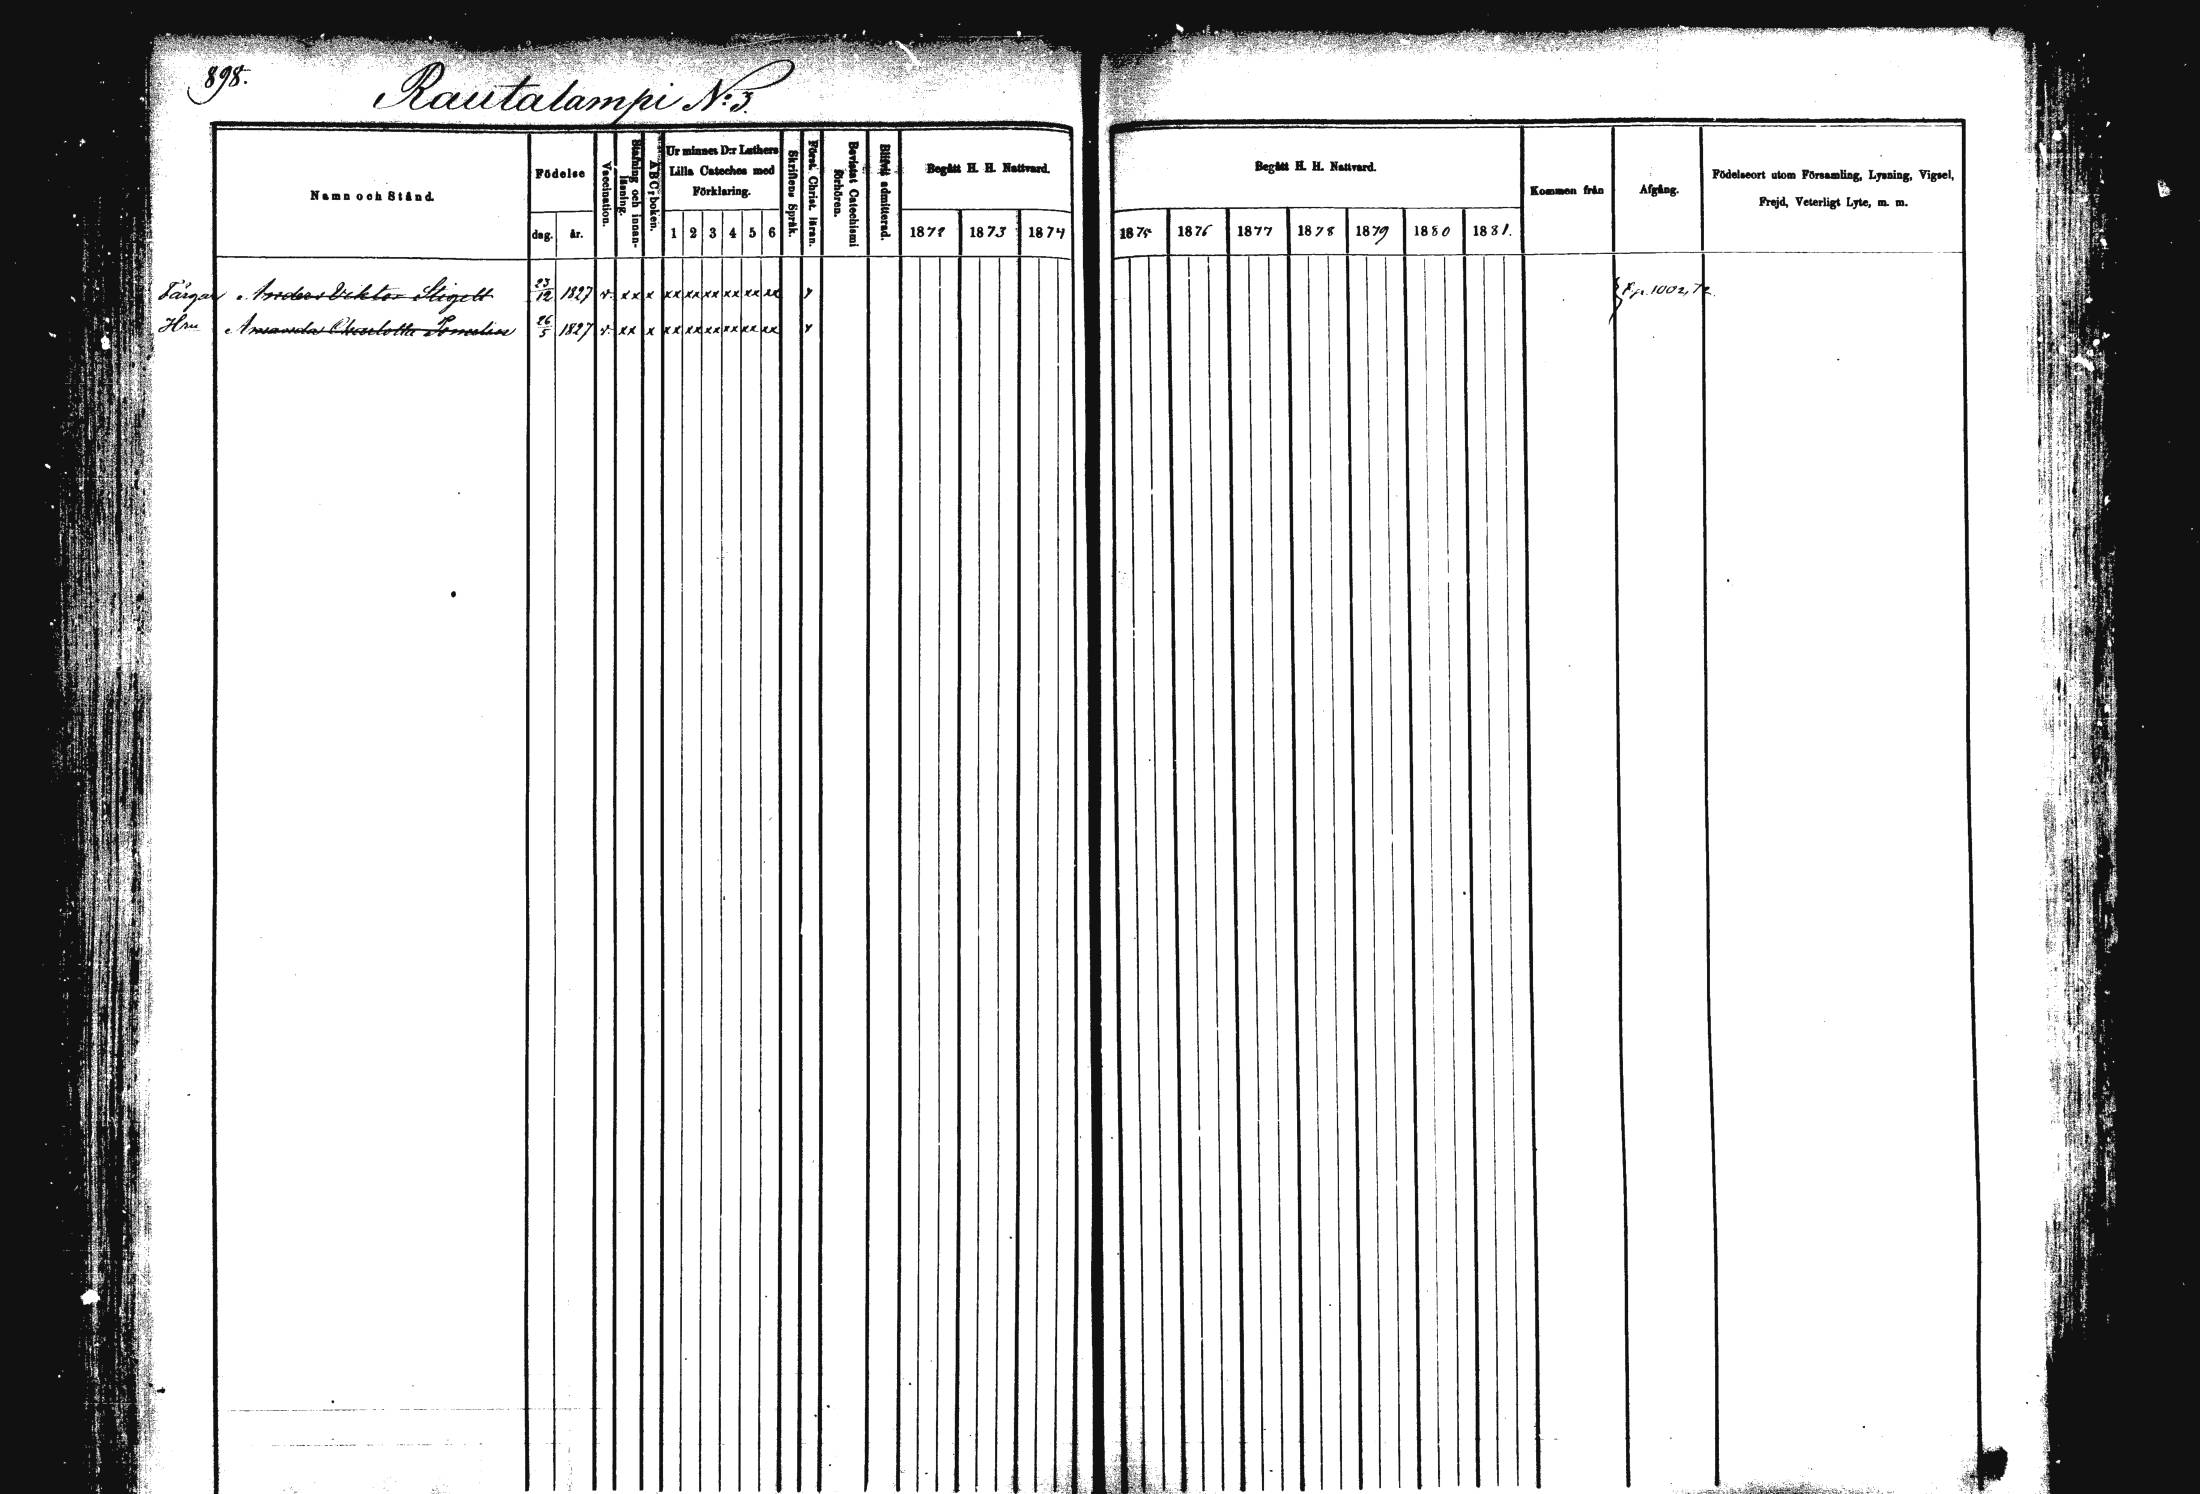 898.
Rautalampi No 3.
Namn och Stånd.
Födelse
dag. år.
Vaccination.
Stafning och innanläsning.
A B C, boken.
Ur minnes D:r Luthers
Lilla Cateches med
Förklaring.
1 2 3 4 5 6
Skriftens Språk.
Först. Christ. läran.
Bevistat Catechismi förhören.
Blifvit admitterad.
Begått H. H. Nattvard.
1872 1873 1874
Begått H. H. Nattvard.
1875 1876 1877 1878 1879 1880 1881.
Kommen från
Afgång.
Födelseort utom Församling, Lysning, Vigsel,
Frejd, Veterligt Lyte, m. m.
Färgar Anders Viktor Stigell 23/12 1827 v. xx x xx xx xx xx xx xx x p. 1002, 72.
Hru Amanda Charlotta 26/5 1827 v. xx x xx xx xx xx xx xx x